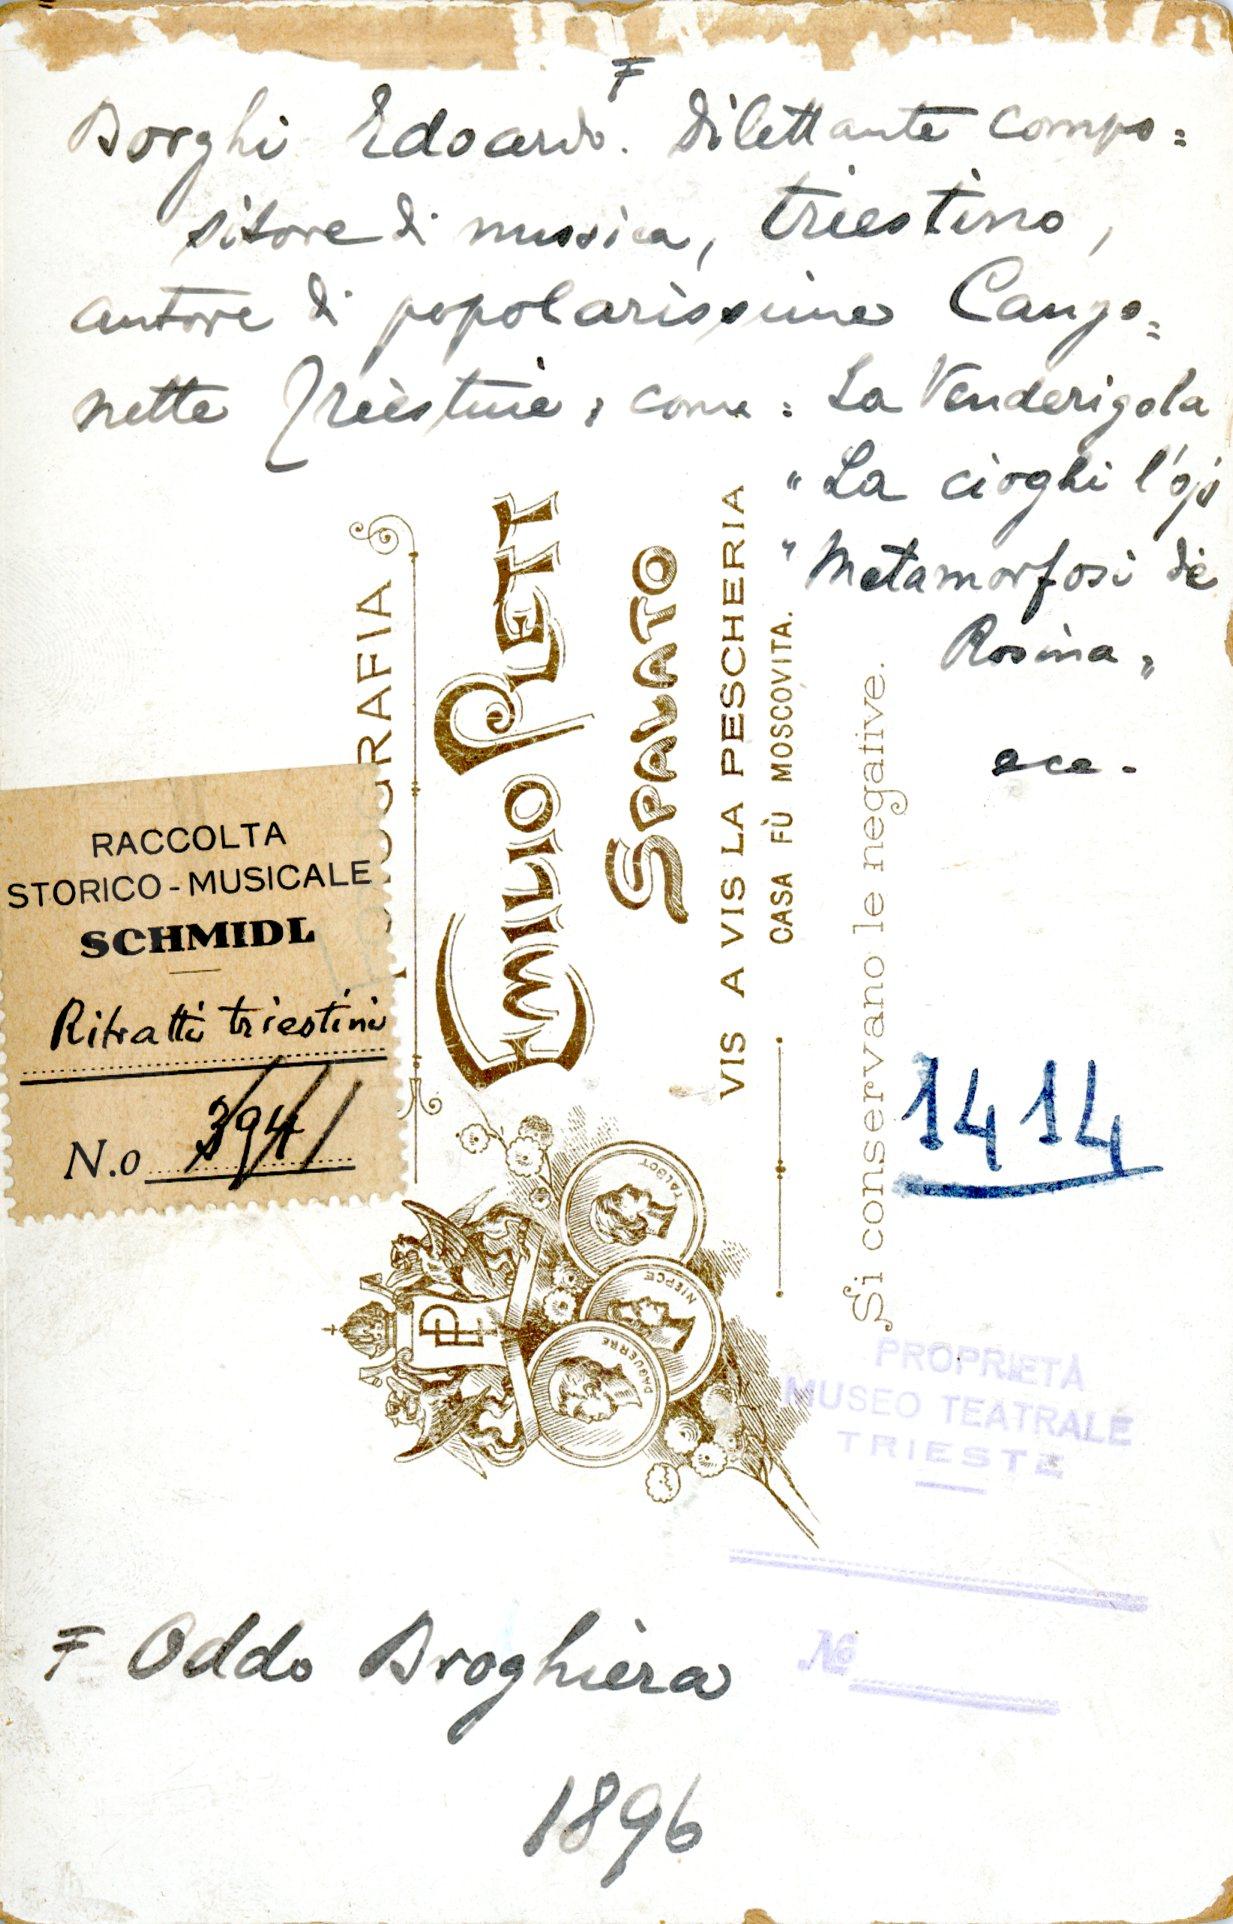 F
Borghi Edoardo. Dilettante compo=
sitore di musica, triestino,
autore di popolarissime Canzo=
nette Triestine, come: La Venderigola
"La cioghi l'ojo
"Metamorfosi de
Rosina"
ecc.
FOTOGRAFIA
EMILIO PLETT
SPALATO
VIS A VIS LA PESCHERIA
CASA FÙ MOSCOVITA.
Si conservano le negative.
RACCOLTA
STORICO-MUSICALE
SCHMIDL
Ritratti triestini
N.o 394
1414
TALBOT
NIEPCE
DAGUERRE
PROPRIETÀ
MUSEO TEATRALE
TRIESTE
No
F Oddo Broghiera
1896